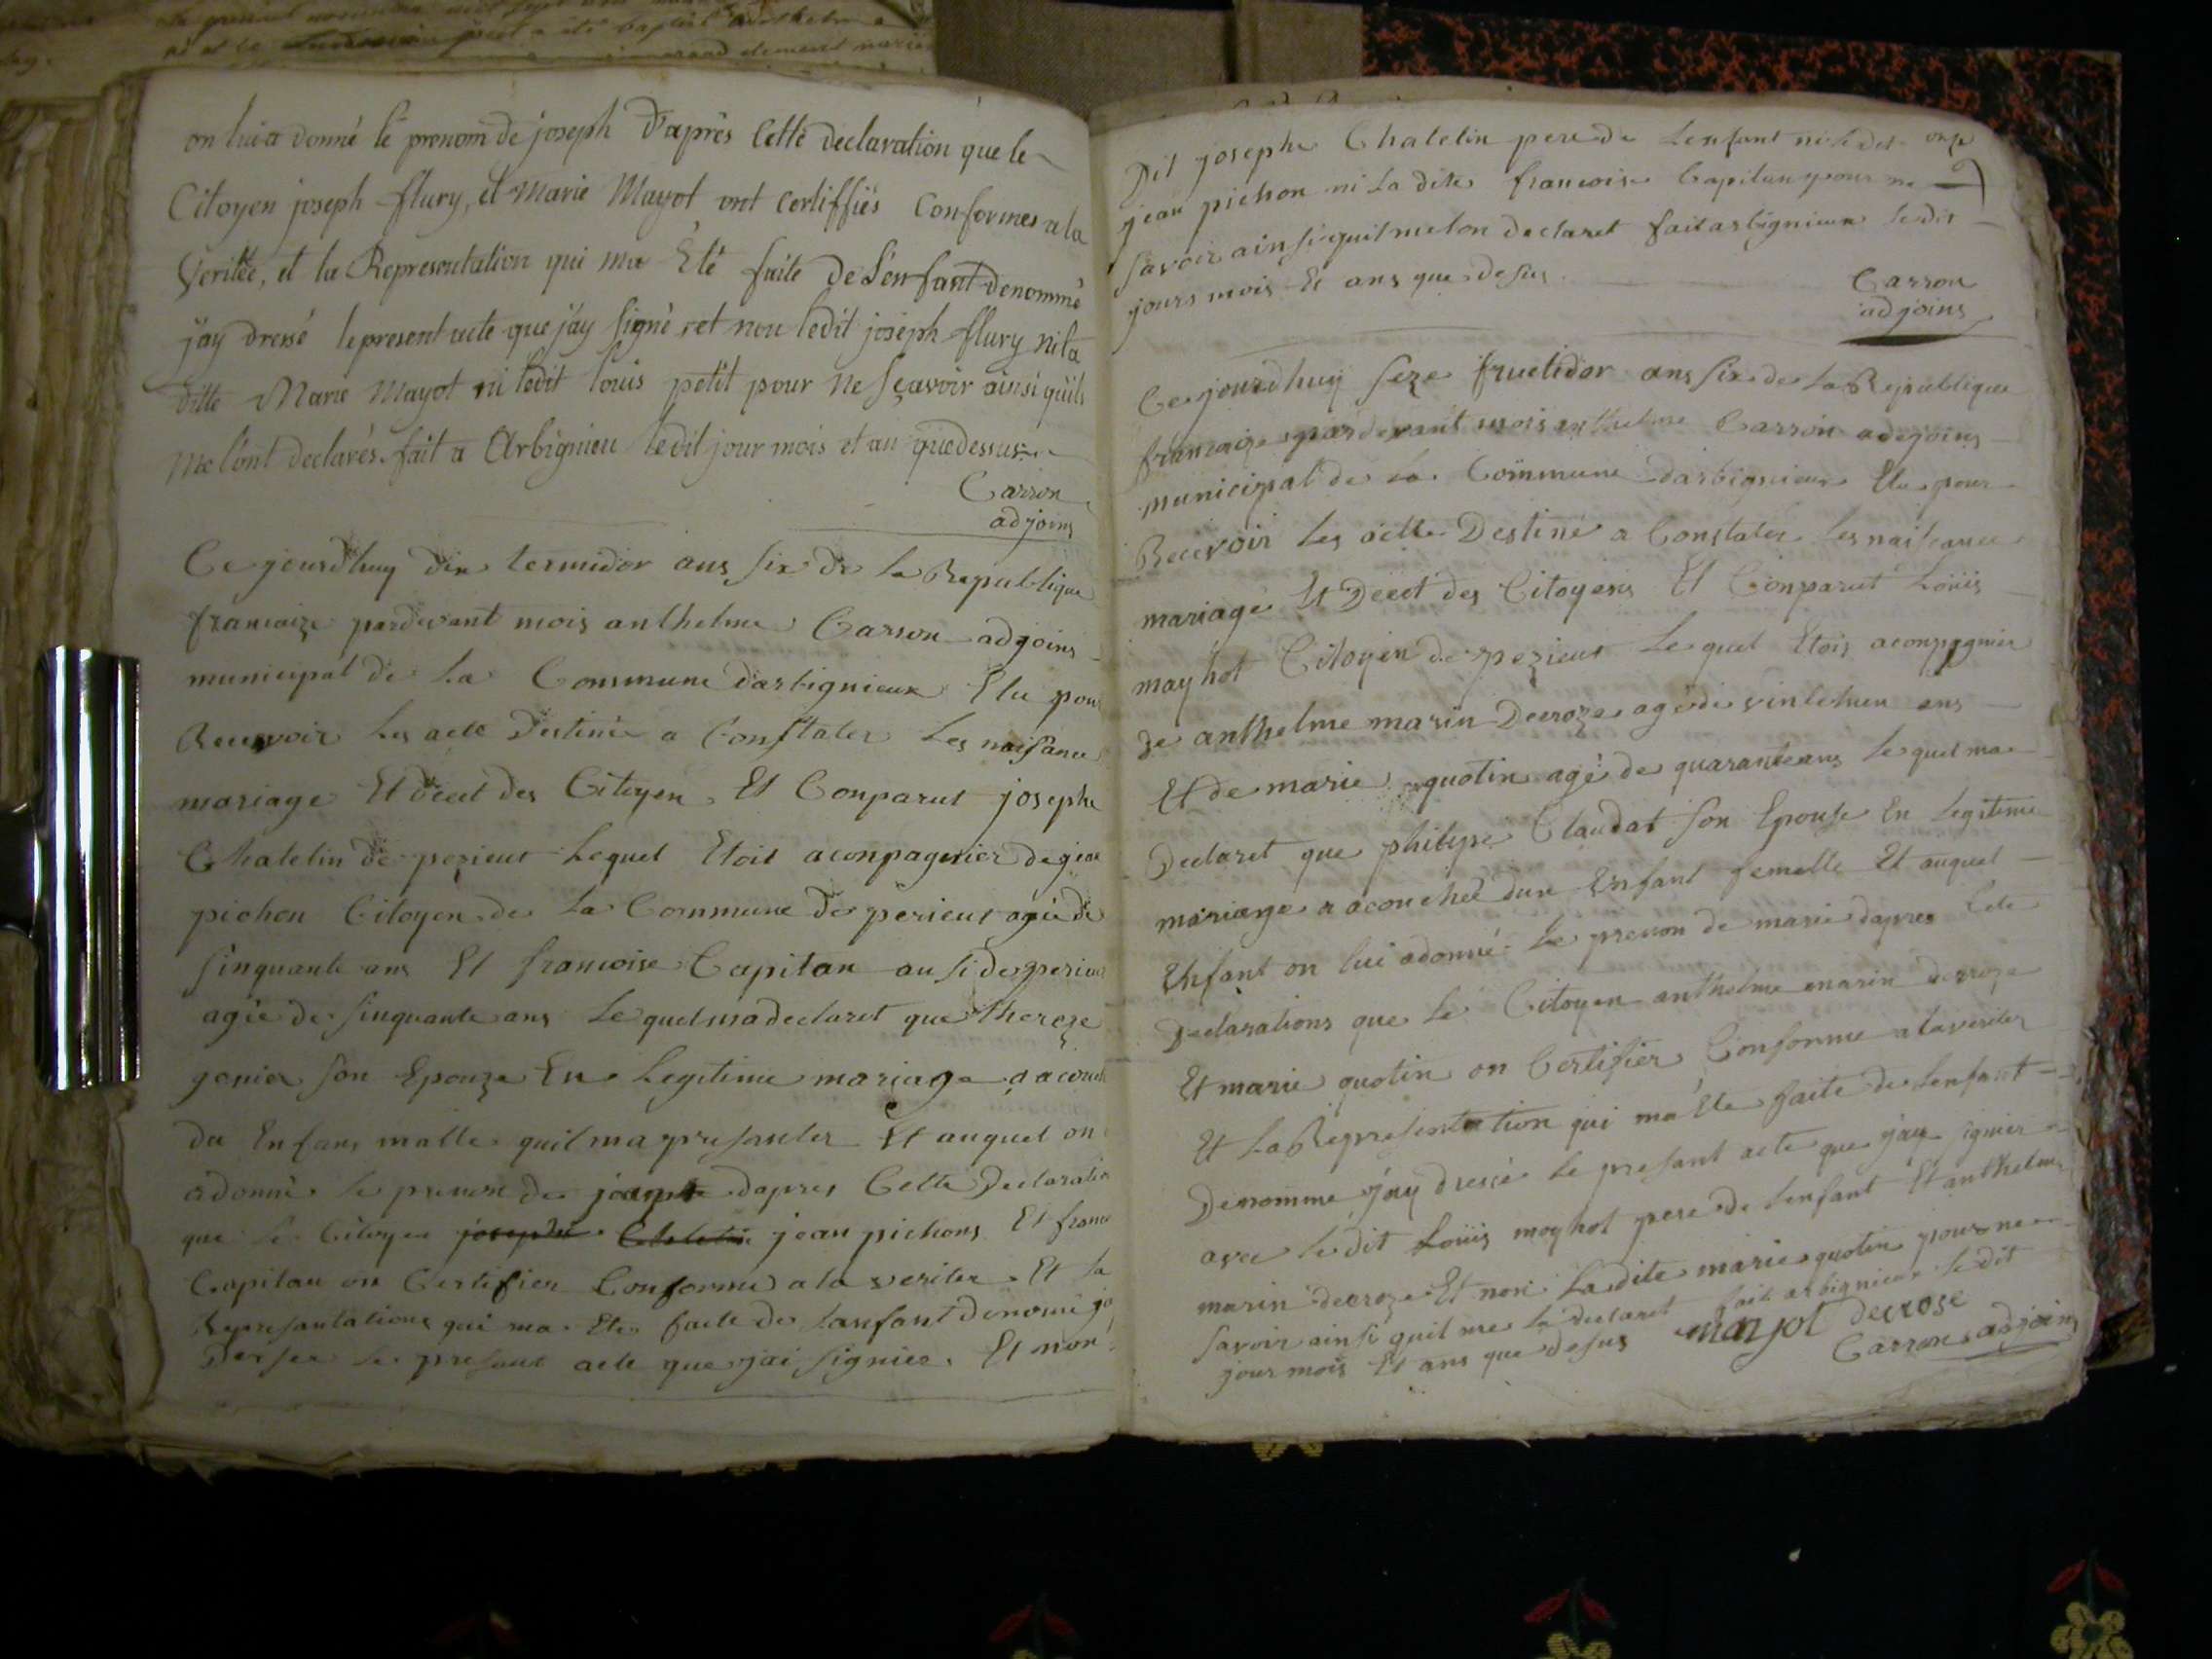 on lui a donné le prenom de joseph D'après Cette declaration que le
Citoyen joseph flury, et Marie Mayot ont Certiffiés Conformes a la
Veritée, et la Representation qui ma Eté faite De L'enfant denommé
j'ay dressé le present acte que j'ay signé, et non ledit joseph flury ni la
ditte Marie Mayot ni ledit louis petit pour ne sçavoir ainsi quils
me lont declarés. fait a Arbignieu ledit jour mois et an que dessus
Carron
adjoins
Ce jourdhuy dix termidor ans six de la Republique
francaize pardevant mois anthelme Carron adjoins
municipal de la Commune darbignieux Elu pour
Recevoir les acte Destiné a Constater Les naisance
mariage Et decet des Citoyen. Et Conparut josephe
Chatelin de pezieut Lequel Etoit aconpagnier de jean
pichon Citoyen de la Commune de perieut agée de
sinquante ans Et francoise Capitan ausi de perieut
agée de sinquante ans Le quel ma declaret que thereze
gonier son Epouze En Legitime mariage a acouch
du Enfans malle quil ma presanter Et auquel on
adonné le prenon de dapres Cette Declaration
que le Citoyen josephe Chatelin jean pichons Et franc
Capitan on Certifier Conforme a la veriter. Et la
Represantations qui ma Ete faite de Lanfant denomé j
Derser le presant acte que jai signier. Et non
Dit josephe Chatelin pere de Lenfant ni ledit
jean pichon ni La dite francoise Capitan pour ne
savoir ainsi quil me lon declaret fait arbignieux le dit
jours mois Et ans que desus
Carron
adjoins
Ce jourdhuy seze fructidor ans six de la Republique
francaize pardevant mois anthelme Carron adejoins
municipal de la Commune darbignieux Elu pour
Recevoir les acte Destiné a Constater les naiseance
mariage Et Decet des Citoyens Et Conparut Louis
mayhot Citoyen de pezieut Lequel Etois aconpagnier
de anthelme marin Decroze agé de vintehuu ans
Et de marie quotin agé de quaranteans le quel ma
Declaret que philipe Claudat son Epouse En legitime
mariange a acouchéé dune Enfant femelle Et auquel
Enfant on lui adonné Le prenon de marie dapres Cete
Declarations que le Citoyen anthelme marin decroze
Et marie quotin on Certifier Conforme a la veriter
Et La Representation qui ma Ete faite de Lenfant
Denomme j'ay dressé le presant acte que j'ay signier
avec le dit Louis mayhot pere de Lenfant Et anthelme
marin decroze Et non La dite marie quotin pour ne
savoir ainsi quil me la declaret fait arbignieux le dit
jour mois Et ans que desus mayot decrose
Carron adjoins